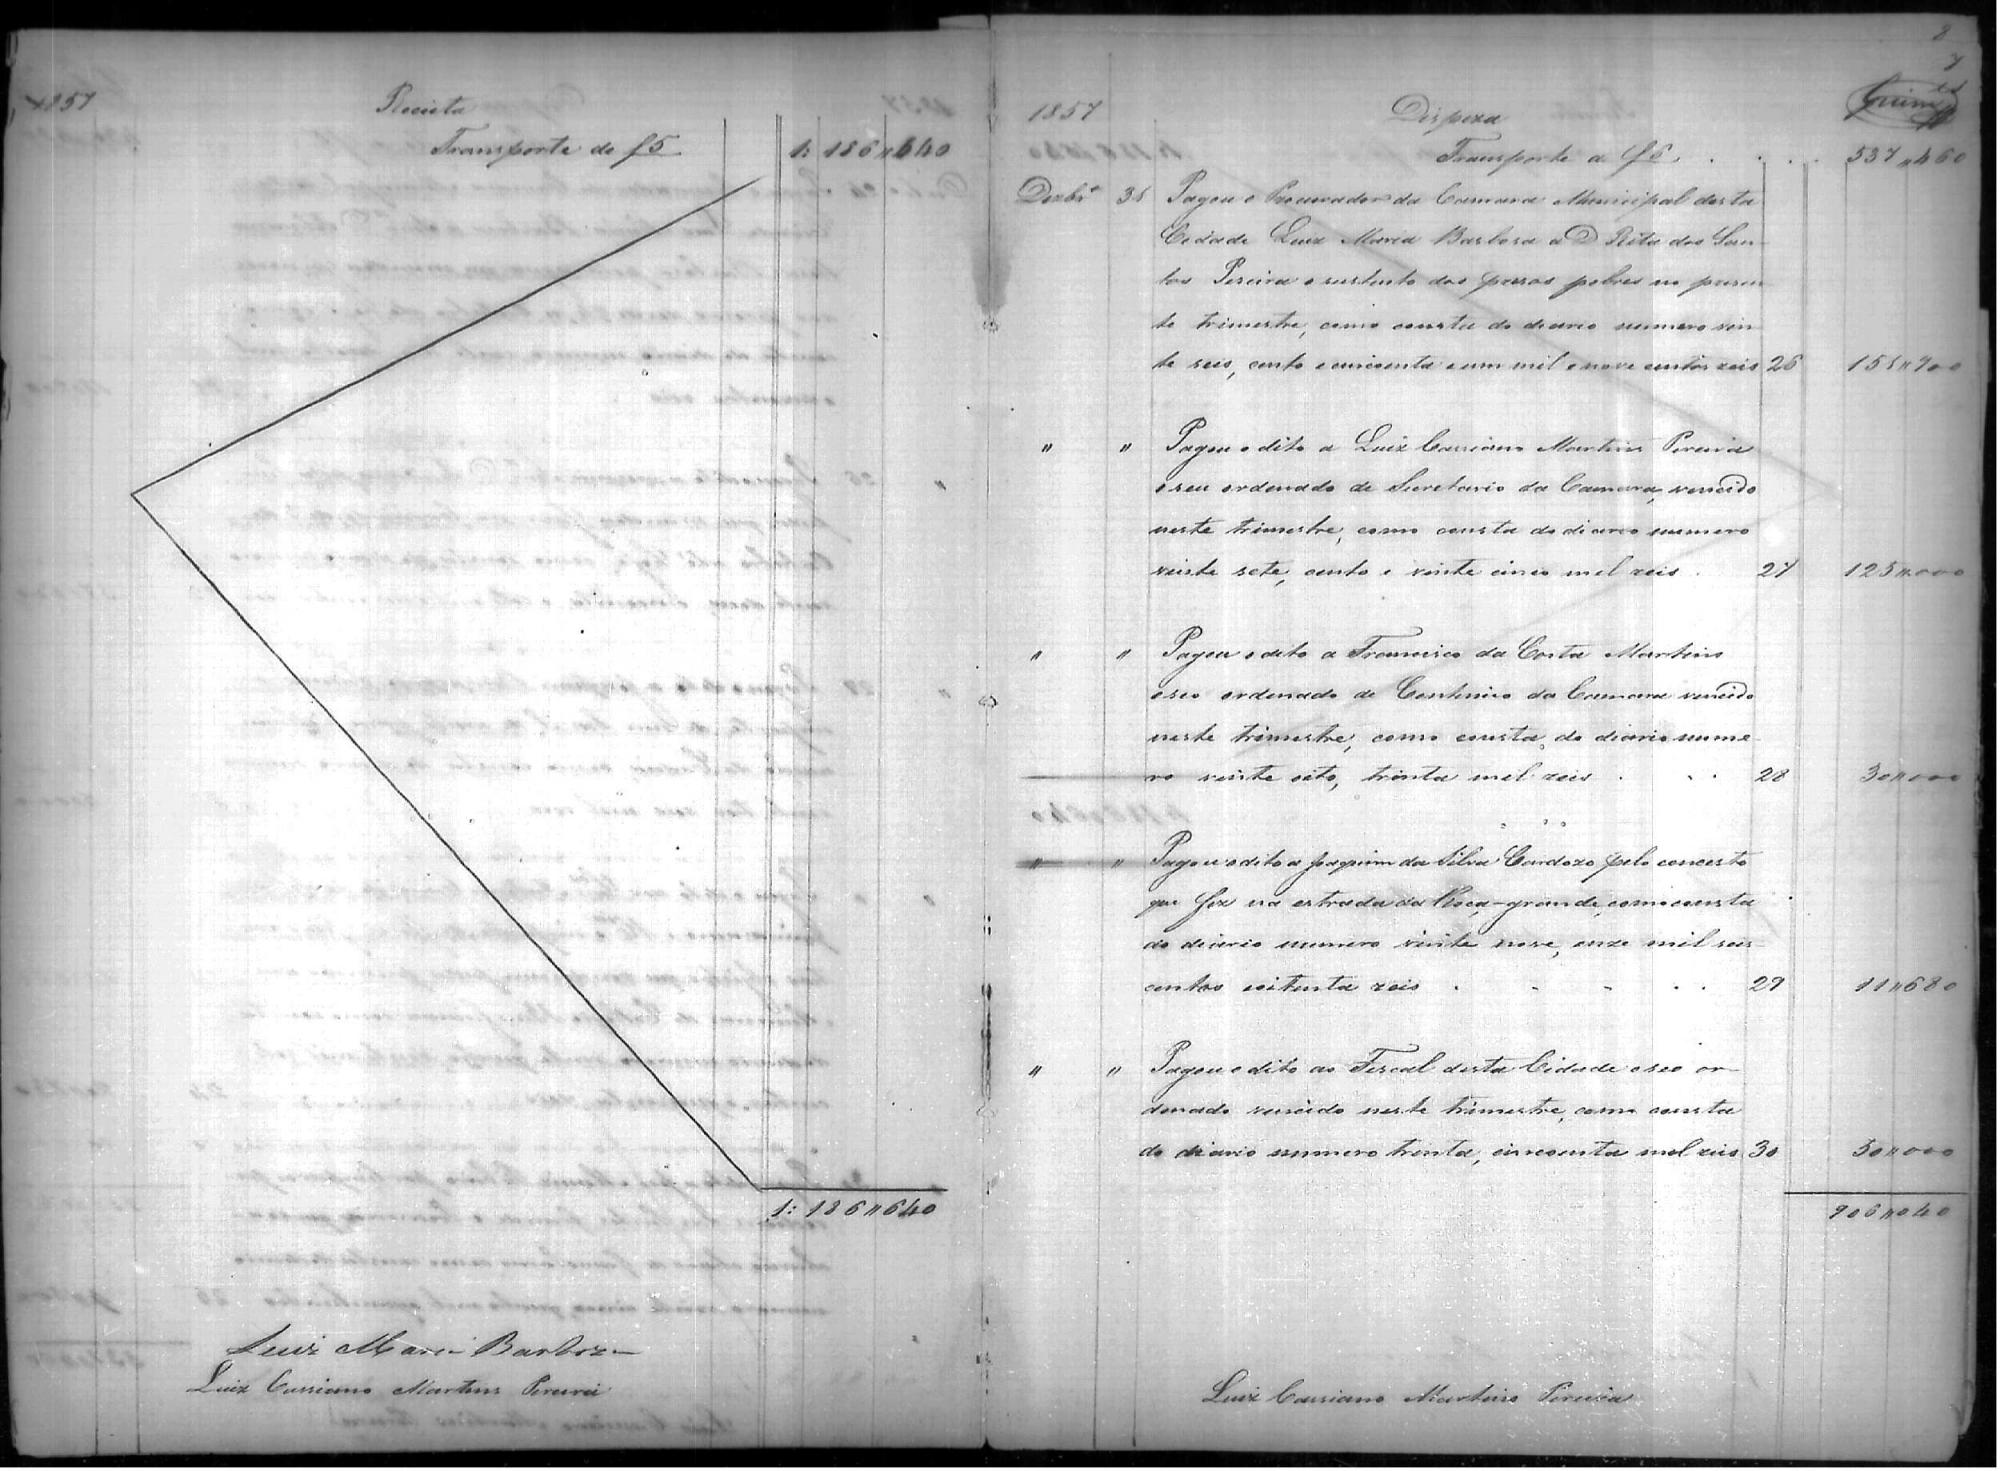 1857
Receita
Transporte de f5 1: 186"640
1: 186"640
Luiz Maria Barboza
Luiz Cassiano Martins Pereira
8
7
Guim.es
1857
Despeza
Transporte de f6 . . . . 537"460
Dezbrº 31 Pagou o Procurador da Camara Municipal desta
Cidade Luiz Maria Barboza a D Rita dos San-
tos Pereira o sustento dos prezos pobres no prezen
te trimestre, como consta do diario numero vin
te seis, cento e cincoenta e um mil e nove centos reis 26 151"900
" " Pagou o dito a Luiz Cassiano Martins Pereira
o seu ordenado de Secretario da Camara, vencido
neste trimestre, como consta do diario numero
vinte sete, cento e vinte cinco mil reis . 27 125"000
" " Pagou o dito a Francisco da Costa Martins
o seo ordenado de Continuo da Camara vencido
neste trimestre, como consta do diario nume
ro vinte oito, trinta mil reis . . . 28 30"000
" " Pagou o dito a Joaquim da Silva Cardozo pelo concerto
que fez na estrada da Roça-grande, como consta
do diario numero vinte nove, onze mil seis
centos e oitenta reis . . . . . 29 11"680
" " Pagou o dito ao Fiscal desta Cidade o seo or-
denado vencido neste trimestre, como consta
do diario numero trinta, cincoenta mil reis 30 50"000
906"040
Luiz Cassiano Martins Pereira